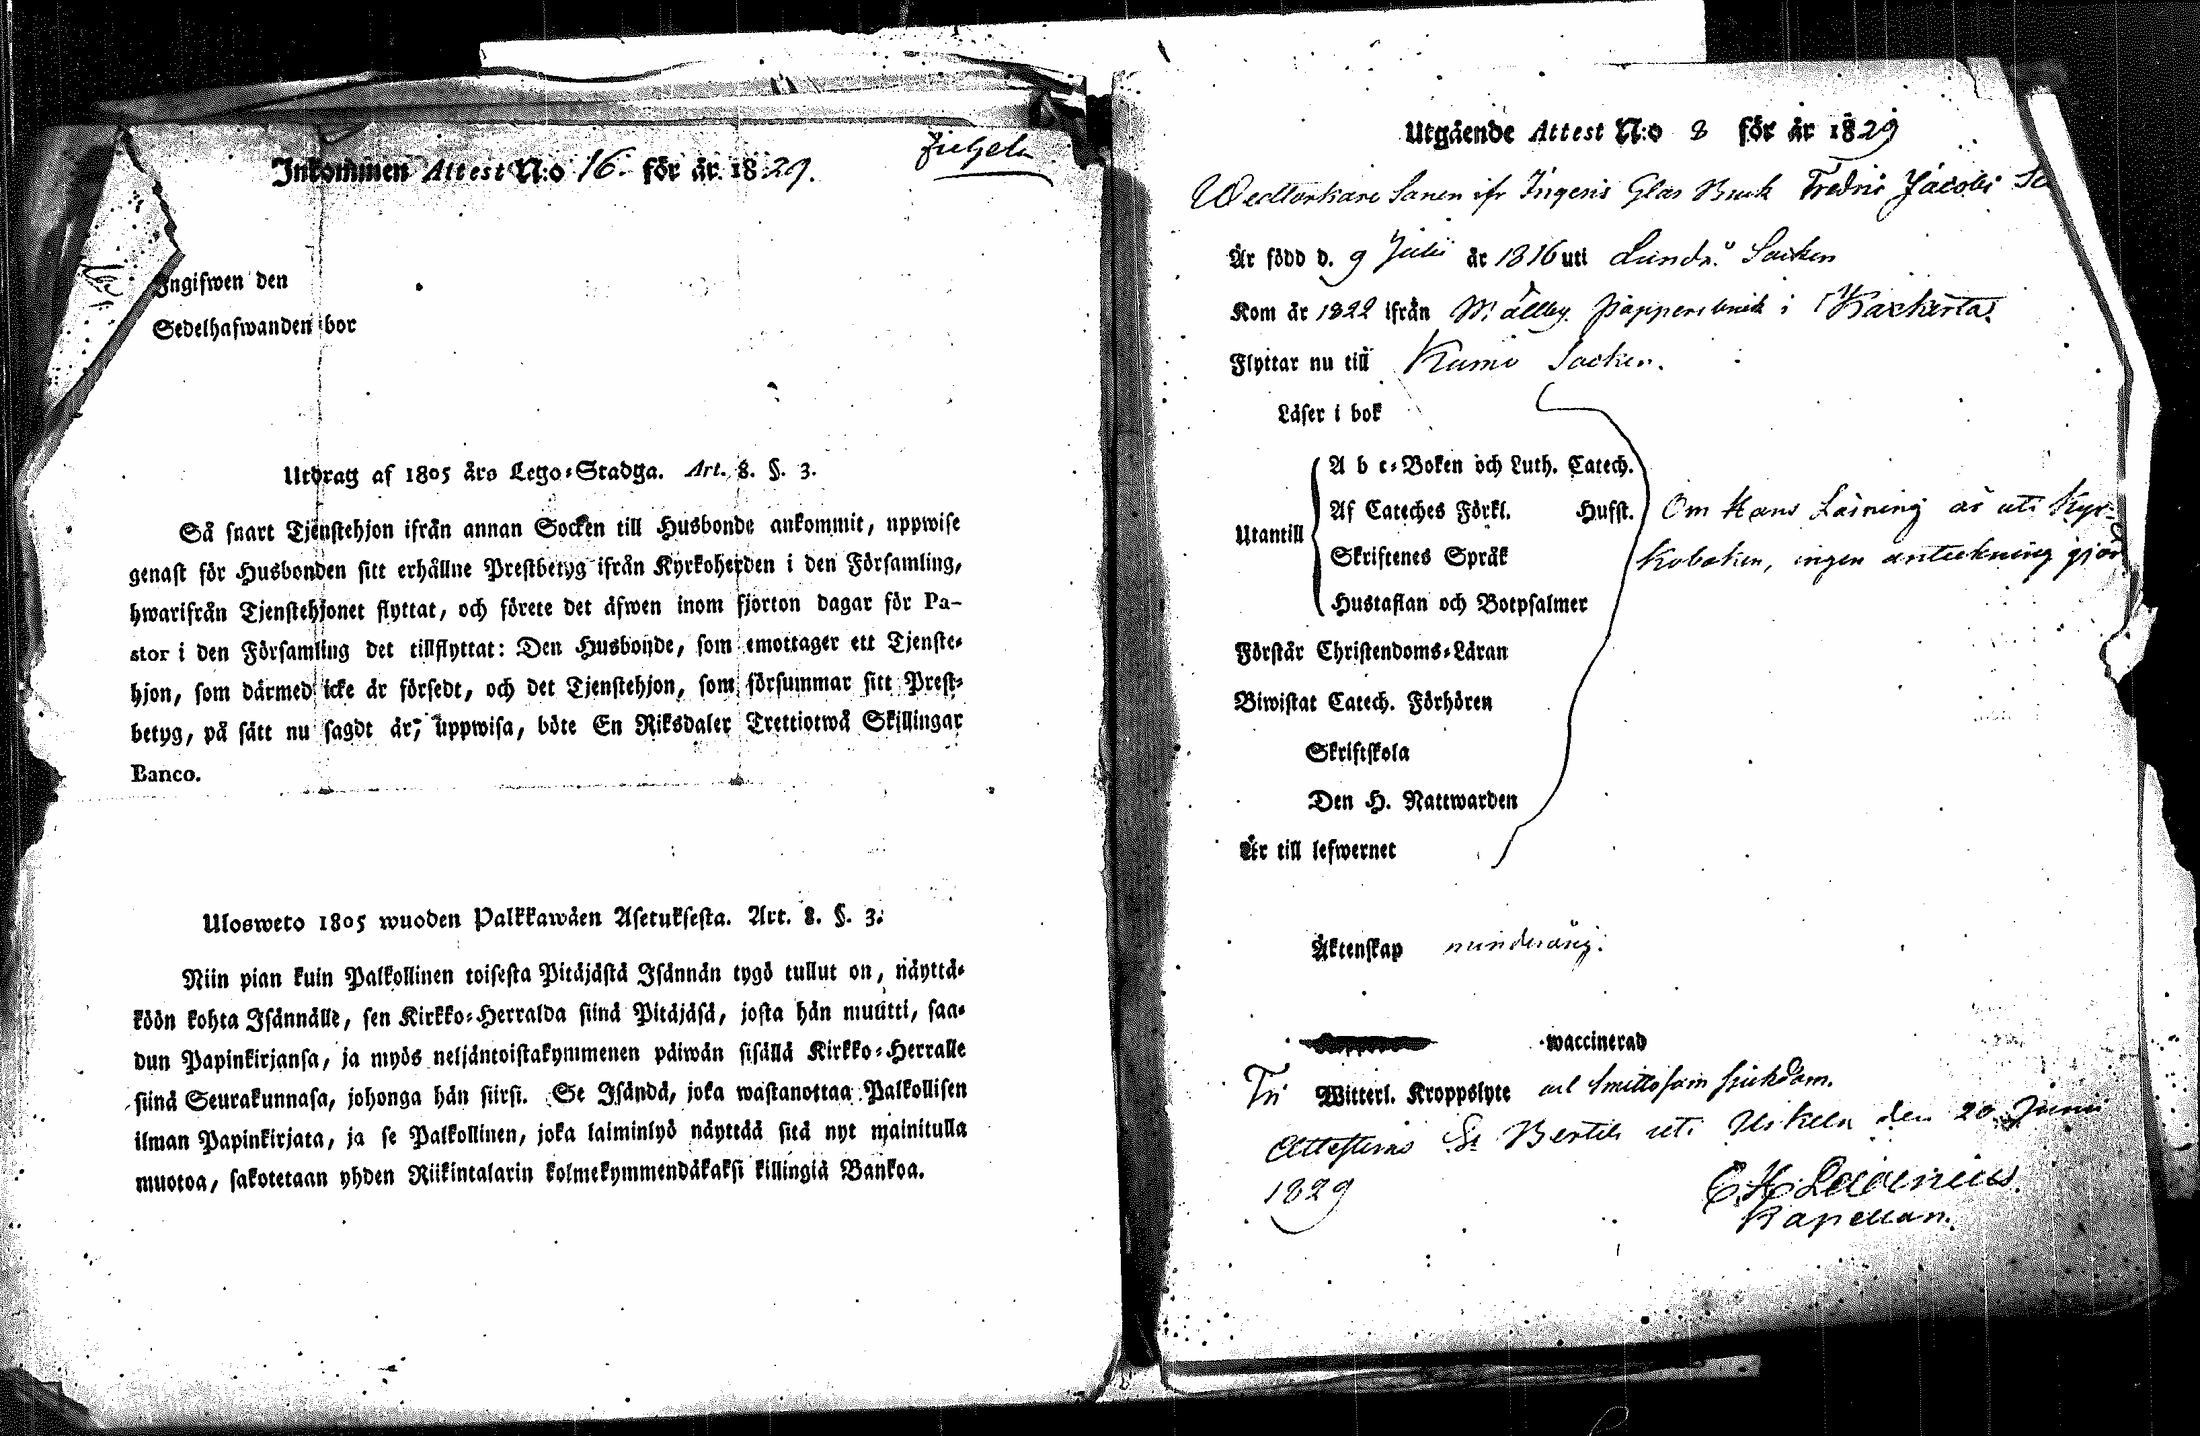 Inkommen Attest N:o 16. för år 1829.
Ingifwen den
Sedelhafwanden bor
Utdrag af 1805 års Lego-Stadga. Art. 8. §. 3.
Så snart Tjenstehjon ifrån annan Socken till Husbonde ankommit, uppwise
genast för Husbonden sitt erhållne Prestbetyg ifrån Kyrkoherden i den Församling,
hwarifrån Tjenstehjonet flyttat, och förete det äfwen inom fjorton dagar för Pa-
stor i den Församling det tillflyttat: Den Husbonde, som emottager ett Tjenste-
hjon, som därmed icke är försedt, och det Tjenstehjon, som försummar sitt Prest-
betyg, på sätt nu sagdt är, uppwisa, böte En Riksdaler Trettiotwå Skillingar
Banco.
Ulosweto 1805 wuoden Palkkawäen Asetuksesta. Art. 8. §. 3.
Niin pian kuin Palkollinen toisesta Pitäjästä Isännän tygö tullut on, näyttä-
köön kohta Isännälle, sen Kirkko-Herralda siinä Pitäjäsä, josta hän muutti, saa-
dun Papinkirjansa, ja myös neljäntoistakymmenen päiwän sisällä Kirkko-Herralle
siinä Seurakunnasa, johonga hän siirsi. Se Isändä, joka wastanottaa Palkollisen
ilman Papinkirjata, ja se Palkollinen, joka laiminlyö näyttää sitä nyt mainitulla
muotoa, sakotetaan yhden Riikintalarin kolmekymmendäkaksi killingiä Bankoa.
Utgående Attest N:o 8 för år 1829
Wedtorkare Sonen ifr Ingeris Glas Bruk Fredric Jacobs
Är född d. 9 Julii år 1816 uti Socken
Kom år 1822 ifrån pappersbruk i
Flyttar nu till Kumo Socken.
Läser i bok
A b c-Boken och Luth. Catech.
Af Cateches Förkl. Husst. Om Hans Läsning är uti Kyr-
Utantill
Skriftenes Språk koboken, ingen anteckning gjord
Hustaflan och Botpsalmer
Förstår Christendoms-Läran
Biwistat Catech. Förhören
Skriftskola
Den H. Nattwarden
Är till lefwernet
Äktenskap minderårig.
waccinerad
Fri Witterl. Kroppslyte och Smittosam sjukdom.
Attesteras St Bertils uti Uskela den 20 Junii
1829
Kapellan.